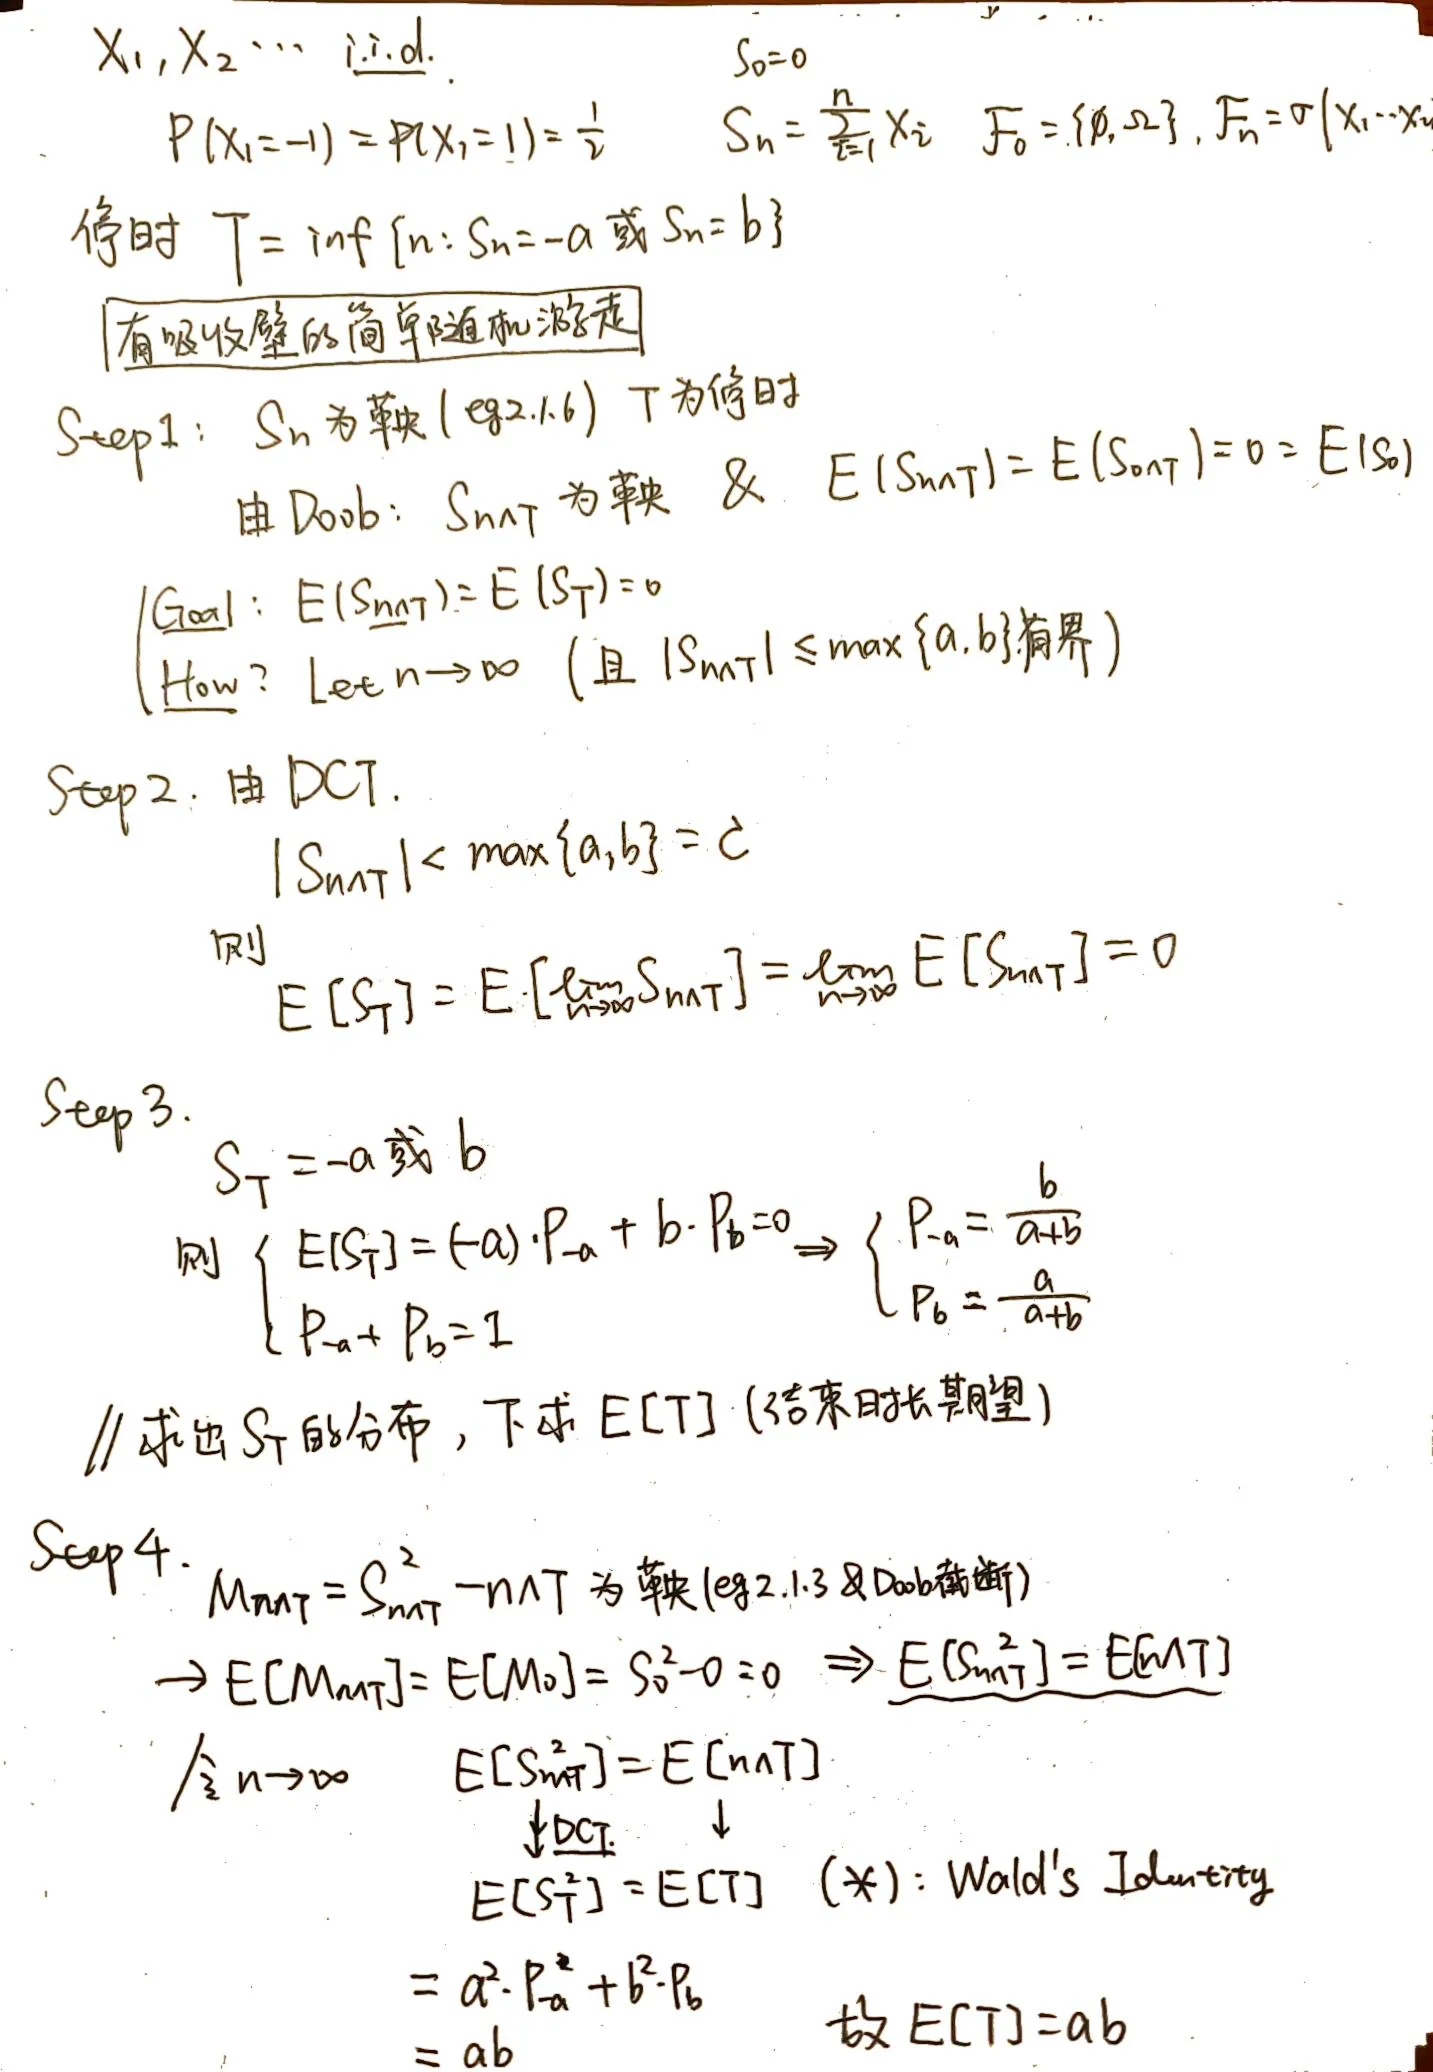 X₁, X₂ ⋯ i.i.d. S₀=0
P(X₁=-1) = P(X₁=1) = 1/2 Sₙ = ∑ᵢ₌₁ⁿ Xᵢ F₀ = {∅, Ω}, Fₙ = σ(X₁⋯Xₙ
停时 T = inf {n: Sₙ=-a 或 Sₙ=b}
有吸收壁的简单随机游走
Step1: Sₙ为鞅(eg2.1.6) T为停时
由Doob: S_{n∧T} 为鞅 & E(S_{n∧T}) = E(S_{0∧T}) = 0 = E(S₀)
Goal: E(S_{n∧T}) = E(S_T) = 0
How? Let n→∞ (且 |S_{n∧T}| ≤ max{a,b}有界)
Step2. 由 DCT.
|S_{n∧T}| < max{a,b} = C
则
E[S_T] = E[lim_{n→∞} S_{n∧T}] = lim_{n→∞} E[S_{n∧T}] = 0
Step3.
S_T = -a 或 b
则 { E[S_T] = (-a)·P₋ₐ + b·P_b = 0 ⇒ { P₋ₐ = b/(a+b)
P₋ₐ + P_b = 1 P_b = a/(a+b)
// 求出 S_T 的分布, 下求 E[T] (结束时长期望)
Step4. M_{n∧T} = S²_{n∧T} - n∧T 为鞅(eg2.1.3 & Doob截断)
→ E[M_{n∧T}] = E[M₀] = S₀² - 0 = 0 ⇒ E[S²_{n∧T}] = E[n∧T]
令 n→∞ E[S²_{n∧T}] = E[n∧T]
↓DCT. ↓
E[S_T²] = E[T] (*): Wald's Identity
= a²·P₋ₐ + b²·P_b
= ab 故 E[T] = ab